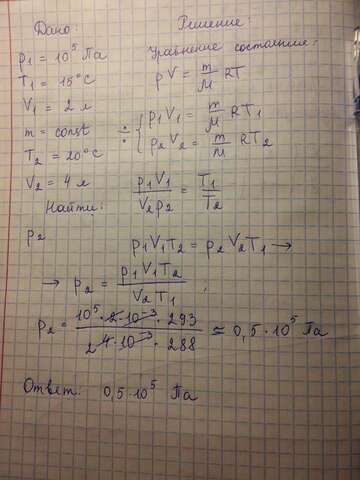 Дано:
p₁ = 10⁵ Па
T₁ = 15°C
V₁ = 2 л
m = const
T₂ = 20°C
V₂ = 4 л
Найти:
p₂
Решение:
Уравнение состояния:
pV = m/M RT
÷ { p₁V₁ = m/M RT₁
p₂V₂ = m/M RT₂
p₁V₁/V₂p₂ = T₁/T₂
p₁V₁T₂ = p₂V₂T₁ →
→ p₂ = p₁V₁T₂/V₂T₁ ,
p₂ = 10⁵·2·10⁻³·293/2 4·10⁻³·288 ≃ 0,5·10⁵ Па
Ответ: 0,5·10⁵ Па